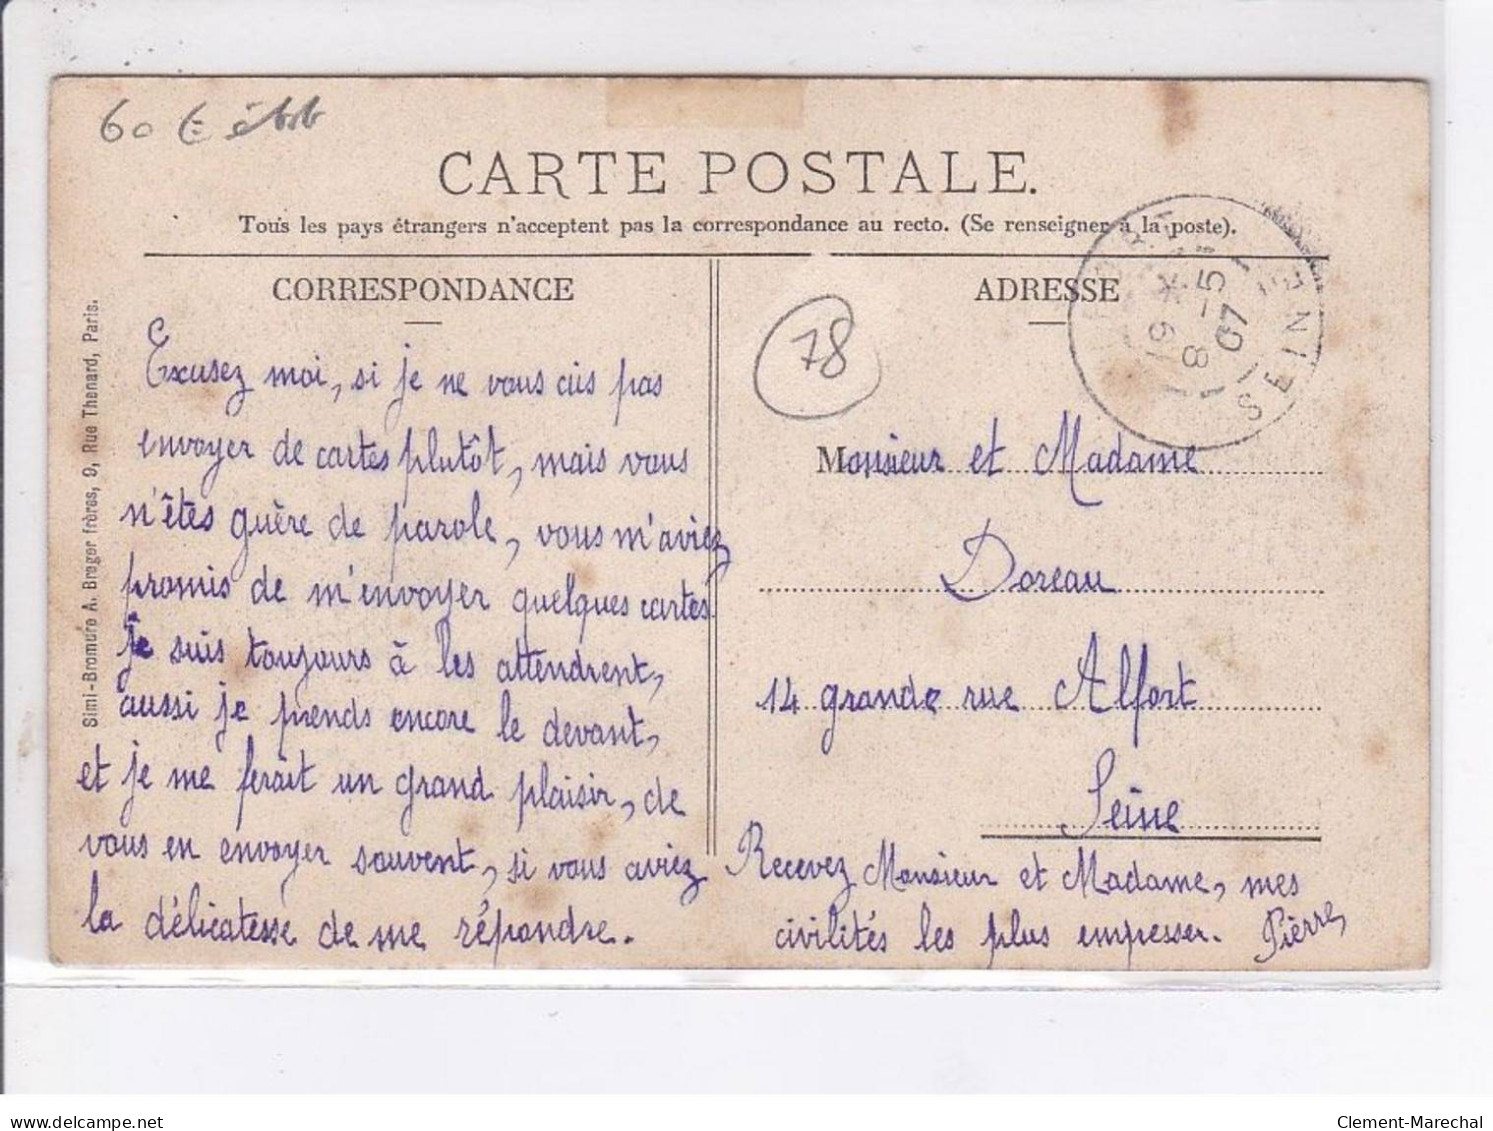 60 €
CARTE POSTALE.
Tous les pays étrangers n'acceptent pas la correspondance au recto. (Se renseigner à la poste).
CORRESPONDANCE
Excusez moi, si je ne vous ais pas
envoyer de cartes plutôt, mais vous
n'êtes guère de parole, vous m'aviez
promis de m'envoyer quelques cartes
je suis toujours à les attendrent,
aussi je prends encore le devant,
et je me ferait un grand plaisir, de
vous en envoyer souvent, si vous aviez
la délicatesse de me répondre.
Simi-Bromure A. Breger frères, 9, Rue Thenard, Paris.
78
ADRESSE
8 -5
07
SEINE
Monsieur et Madame
Doreau
14 grande rue Alfort
Seine
Recevez Monsieur et Madame, mes
civilités les plus empresser. Pierre
www.delcampe.net
Clement-Marechal